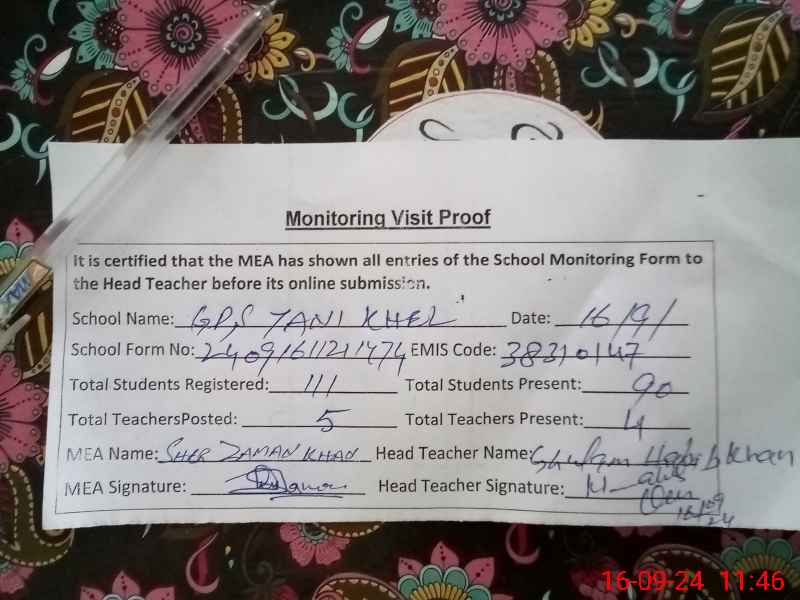 Monitoring Visit Proof
It is certified that the MEA has shown all entries of the School Monitoring Form to
the Head Teacher before its online submission.
School Name: GPS JANI KHEL Date: 16/9/
School Form No: EMIS Code: 38310147
Total Students Registered: 111 Total Students Present: 90
Total TeachersPosted: 5 Total Teachers Present: 4
MEA Name: SHER ZAMAN KHAN Head Teacher Name: Ghulam Habib Khan
MEA Signature: Head Teacher Signature:
16/09
24
16-09-24 11:46